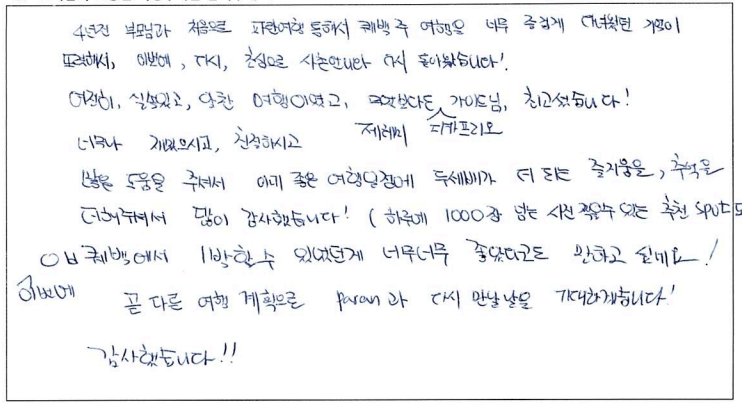 4년전 부모님과 처음으로 파란여행 통해서 퀘백 주 여행을 너무 즐겁게 다녀왔던 기억이
또렷해서, 이번에, 다시, 혼심으로 사촌언니랑 다시 돌아왔습니다!
여전히, 실속있고, 알찬 여행이였고, 무엇보다도 가이드님, 최고셨습니다!
제레미 디카프리오
너무나 재밌으시고, 친절하시고
많은 도움을 주셔서 이미 좋은 여행일정에 두세배가 더 되는 즐거움을, 추억을
더해주셔서 많이 감사했습니다! (하루에 1000장 넘는 사진 찍을수 있는 추천 spot도
이번에 퀘백에서 1박할 수 있었던게 너무너무 좋았다고도 말하고 싶네요!
곧 다른 여행 계획으로 paran과 다시 만날날을 기대하겠습니다!
감사했습니다!!